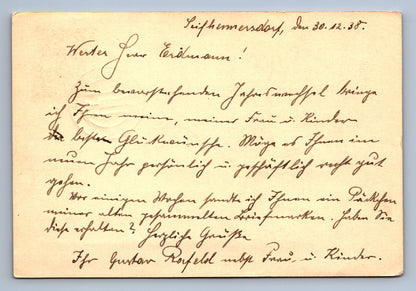 Seifhennersdorf, den 30.12.38.
Werter Herr Erdmann!
Zum bevorstehenden Jahreswechsel bringe
ich Ihnen meine, meiner Frau u. Kinder
die besten Glückwünsche. Möge es Ihnen im
neuen Jahr persönlich u. geschäftlich recht gut
gehen.
Vor einigen Wochen sandte ich Ihnen ein Päckchen
meiner alten gesammelten Briefmarken. Haben Sie
diese erhalten? Herzliche Grüße
Ihr Gustav nebst Frau u. Kinder.